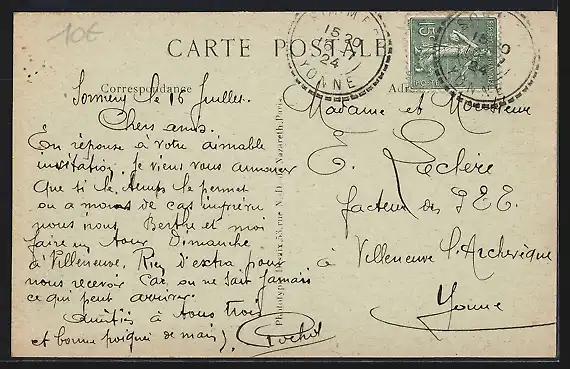 10€
CARTE POSTALE
Correspondance
Sommery le 16 Juillet.
Chers amis.
En réponse à votre aimable
invitation, je viens vous annoncer
que si le temps le permet
ou a moins de cas imprévu
nous irons Berthe et moi
faire un tour Dimanche
à Villeneuve. Rien d'extra pour
nous recevoir car on ne sait jamais
ce qui peut arriver.
Amitiés à tous trois
et bonne poignée de mains
Phototypie 53, rue N.-D. de Nazareth, Paris
Madame et Monsieur
E. Leclère
facteur des P.T.T.
à Villeneuve l'Archevêque
Yonne
15
YONNE
24
YONNE